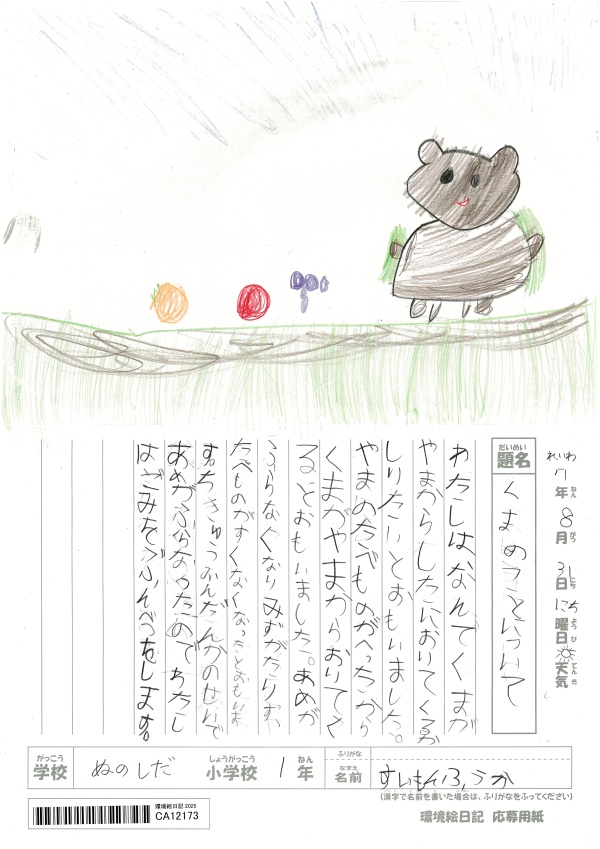 れいわ 7年 8月 31日 にち曜日 天気
題名 くまのことについて
わたしはなんでくまが
やまからしたにおりてくるか
しりたいとおもいました。
やまのたべものがへったから
くまがやまからおりてく
るとおもいました。あめが
ふらなくなりみずがたりず、
たべものがすくなくなったとおもいま
す。ちきゅうおんだんかのせいで
あめがふらなかたのでわたし
はごみをぶんべつをします。
がっこう 学校 ぬのしだ しょうがっこう 小学校 1 ねん 年
ふりがな
なまえ 名前
(漢字で名前を書いた場合は、ふりがなをふってください)
環境絵日記 2025
CA12173
環境絵日記 応募用紙